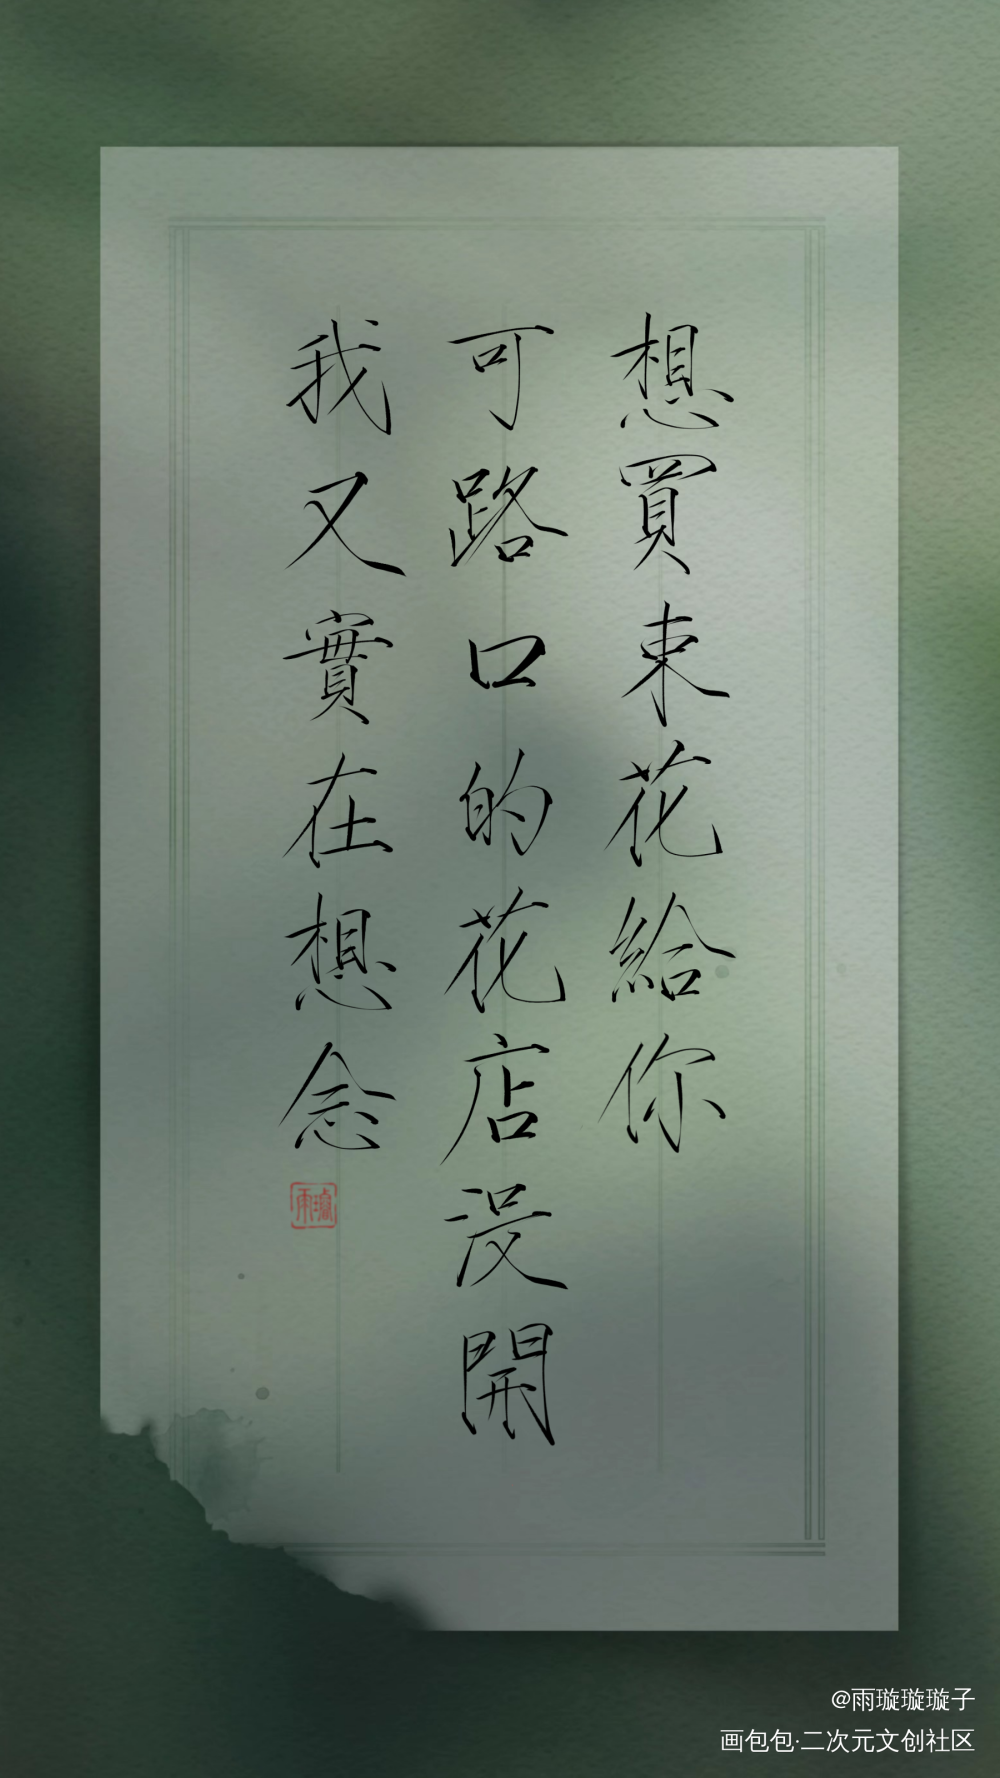 想買束花給你
可路口的花店沒開
我又實在想念
雨璇
@雨璇璇璇子
画包包·二次元文创社区